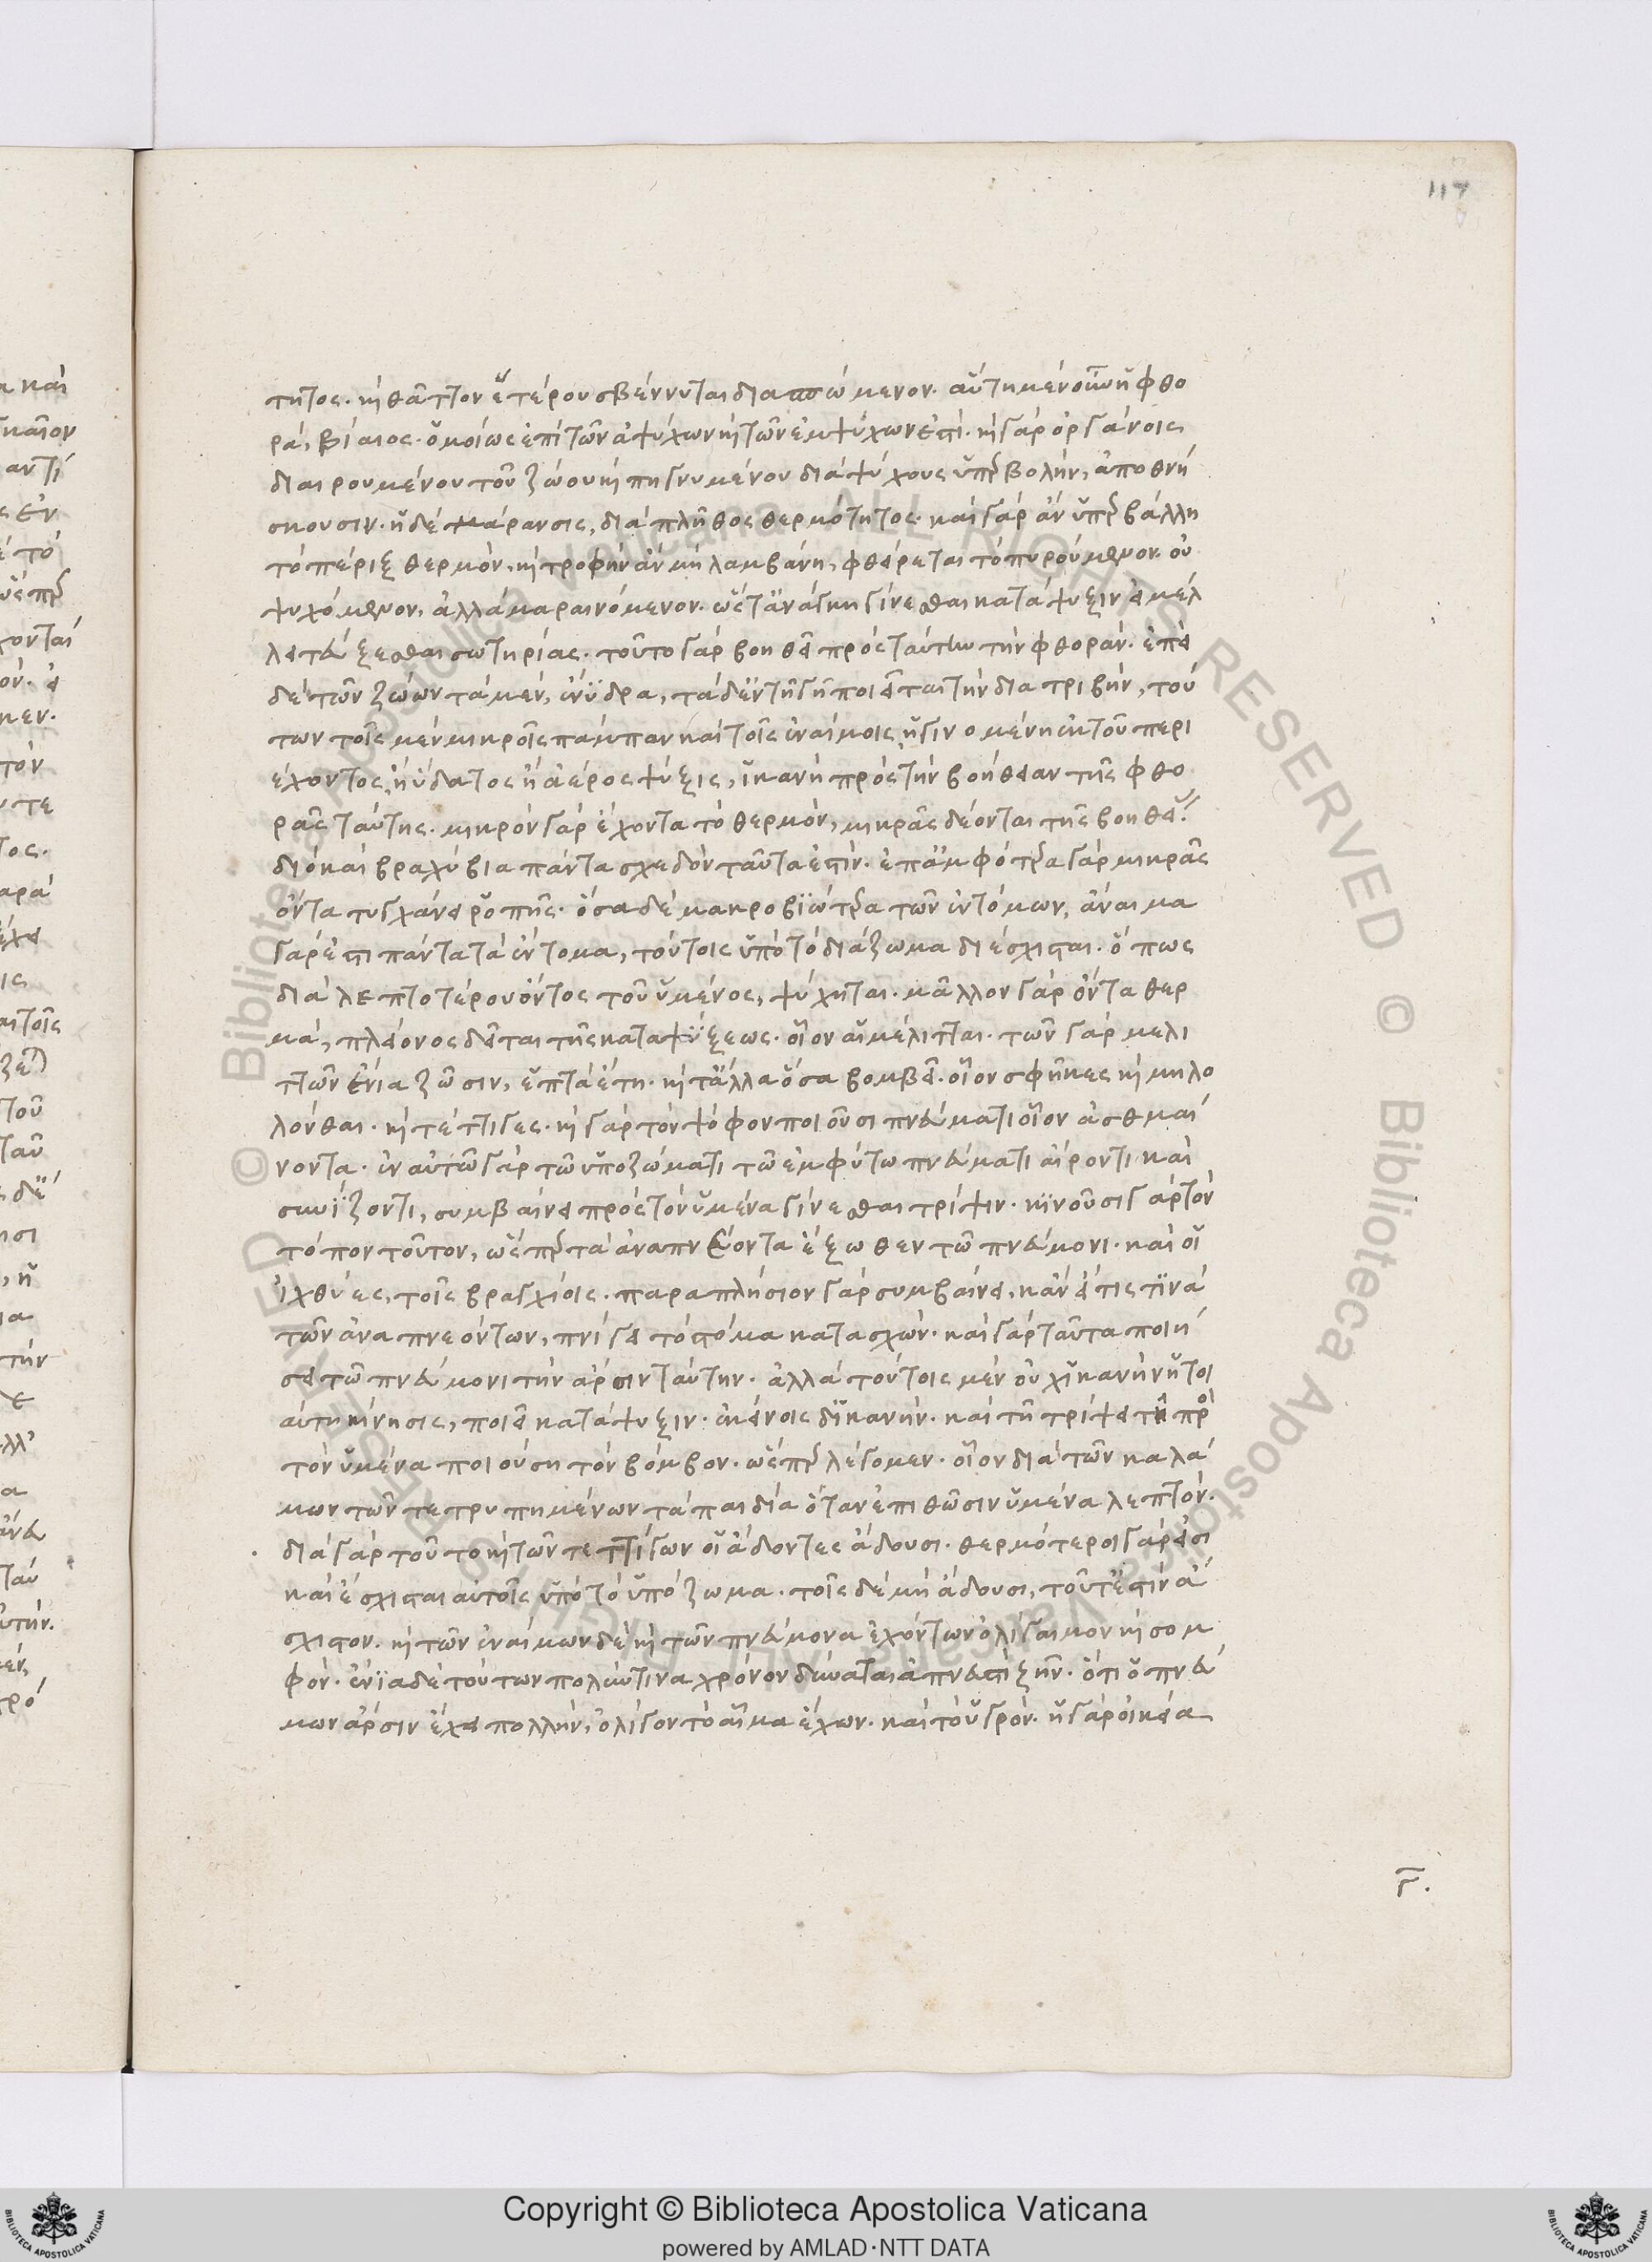 117
τητος. καὶ θᾶττον ἑτέρου σβέννυται διασπώμενον. αὕτη μὲν οὖν ἡ φθο
ρά, βίαιος. ὁμοίως ἐπὶ τῶν ἀψύχων καὶ τῶν ἐμψύχων ἐστί. καὶ γὰρ ὀργάνοις
διαιρουμένου τοῦ ζώου καὶ πηγνυμένου διὰ ψύχους ὑπερβολήν, ἀποθνή
σκουσιν. ἡ δὲ μάρανσις, διὰ πλῆθος θερμότητος. καὶ γὰρ ἂν ὑπερβάλλη
τὸ πέριξ θερμόν, καὶ τροφὴν ἂν μὴ λαμβάνη, φθείρεται τὸ πυρούμενον. οὐ
ψυχόμενον, ἀλλὰ μαραινόμενον. ὥστ' ἀνάγκη γίνεσθαι κατάψυξιν εἰ μέλ
λει τεύξεσθαι σωτηρίας. τοῦτο γὰρ βοηθεῖ πρὸς ταύτην τὴν φθοράν. ἐπεὶ
δὲ τῶν ζώων τὰ μὲν, ἔνυδρα, τὰ δ' ἐν τῆ γῆ ποιεῖται τὴν διατριβήν, τού
των τοῖς μὲν μικροῖς πάμπαν καὶ τοῖς ἀναίμοις, ἡ γινομένη ἐκ τοῦ περι
έχοντος, ἢ ὕδατος ἢ ἀέρος ψύξις, ἱκανὴ πρὸς τὴν βοήθειαν τῆς φθο
ρᾶς ταύτης. μικρὸν γὰρ ἔχοντα τὸ θερμόν, μικρᾶς δέονται τῆς βοηθείας.
διὸ καὶ βραχύβια πάντα σχεδὸν ταῦτα ἐστίν. ἐπ' ἀμφότερα γὰρ μικρᾶς
ὄντα τυγχάνει ῥοπῆς. ὅσα δὲ μακροβιώτερα τῶν ἐντόμων, ἄναιμα
γάρ ἐστι πάντα τὰ ἔντομα, τούτοις ὑπὸ τὸ διάζωμα διέσχισται. ὅπως
διὰ λεπτοτέρου ὄντος τοῦ ὑμένος, ψύχηται. μᾶλλον γὰρ ὄντα θερ
μά, πλείονος δεῖται τῆς καταψύξεως. οἷον αἱ μέλιτται. τῶν γὰρ μελι
ττῶν ἔνια ζῶσιν, ἑπτὰ ἔτη. καὶ τἄλλα ὅσα βομβεῖ. οἷον σφῆκες καὶ μηλο
λόνθαι. καὶ τέττιγες. καὶ γὰρ τὸν ψόφον ποιοῦσι πνεύματι οἷον ἀσθμαί
νοντα. ἐν αὐτῶ γὰρ τῶ ὑποζώματι τῶ ἐμφύτω πνεύματι αἴροντι καὶ
συνίζοντι, συμβαίνει πρὸς τὸν ὑμένα γίνεσθαι τρίψιν. κινοῦσι γὰρ τὸν
τόπον τοῦτον, ὥσπερ τὰ ἀναπνέοντα ἔξωθεν τῶ πνεύμονι. καὶ οἱ
ἰχθύες, τοῖς βραγχίοις. παραπλήσιον γὰρ συμβαίνει, κἂν εἴ τις τινὰ
τῶν ἀναπνεόντων, πνίγει τὸ στόμα κατασχών. καὶ γὰρ ταῦτα ποιή
σει τῶ πνεύμονι τὴν ἄρσιν ταύτην. ἀλλὰ τούτοις μὲν οὐχ ἱκανὴν ἡ τοι
αύτη κίνησις, ποιεῖ κατάψυξιν. ἐκείνοις δ' ἱκανήν. καὶ τῆ τρίψει τῆ πρὸς
τὸν ὑμένα ποιούση τὸν βόμβον. ὥσπερ λέγομεν. οἷον διὰ τῶν καλά
μων τῶν τετρυπημένων τὰ παιδία ὅταν ἐπιθῶσιν ὑμένα λεπτόν.
διὰ γὰρ τοῦτο καὶ τῶν τεττίγων οἱ ἄδοντες ἄδουσι. θερμότεροι γάρ εἰσι
καὶ ἔσχισται αὐτοῖς ὑπὸ τὸ ὑπόζωμα. τοῖς δὲ μὴ ἄδουσι, τοῦτ' ἐστὶν ἄ
σχιστον. καὶ τῶν ἐναίμων δὲ καὶ τῶν πνεύμονα ἐχόντων ὀλίγαιμον καὶ σομ
φόν. ἔνια δὲ τούτων πολύν τινα χρόνον δύναται ἀπνευστὶ ζῆν. ὅτι ὁ πνεύ
μων ἄρσιν ἔχει πολλήν, ὀλίγον τὸ αἷμα ἔχων. καὶ τὸ ὑγρόν. ἡ γὰρ οἰκεία
γ.
Copyright © Biblioteca Apostolica Vaticana
powered by AMLAD·NTT DATA